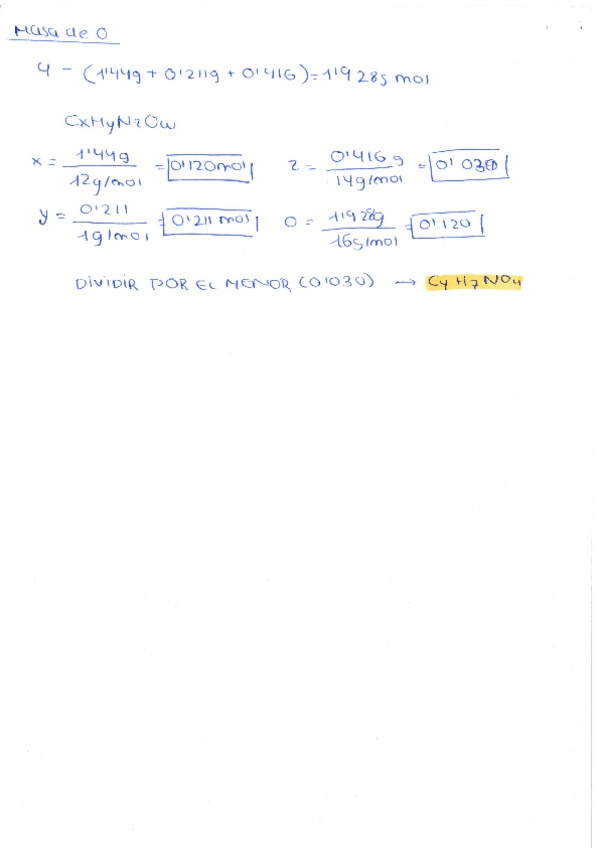 Masa de O
4 - (1'44g + 0'211g + 0'416) = 1'9285 mol
CxHyNzOw
x = 1'44g / 12g/mol = 0'120mol z = 0'416g / 14g/mol = 0'030
y = 0'211 / 1g/mol = 0'211 mol O = 1'928g / 16g/mol = 0'120
DIVIDIR POR EL MENOR (0'030) → C4H7NO4